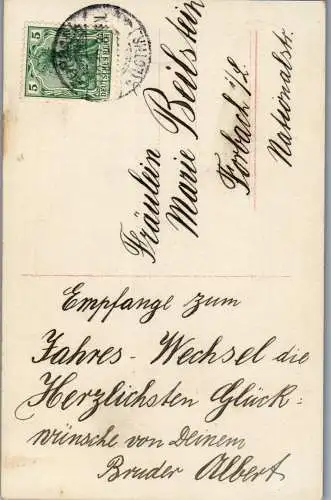 5
5
DEUTSCHES REICH
(LOTHR.)
Fräulein
Marie Beilstein
Forbach i/L.
Nationalstr.
Empfange zum
Jahres-Wechsel die
Herzlichsten Glück-
wünsche von Deinem
Bruder Albert